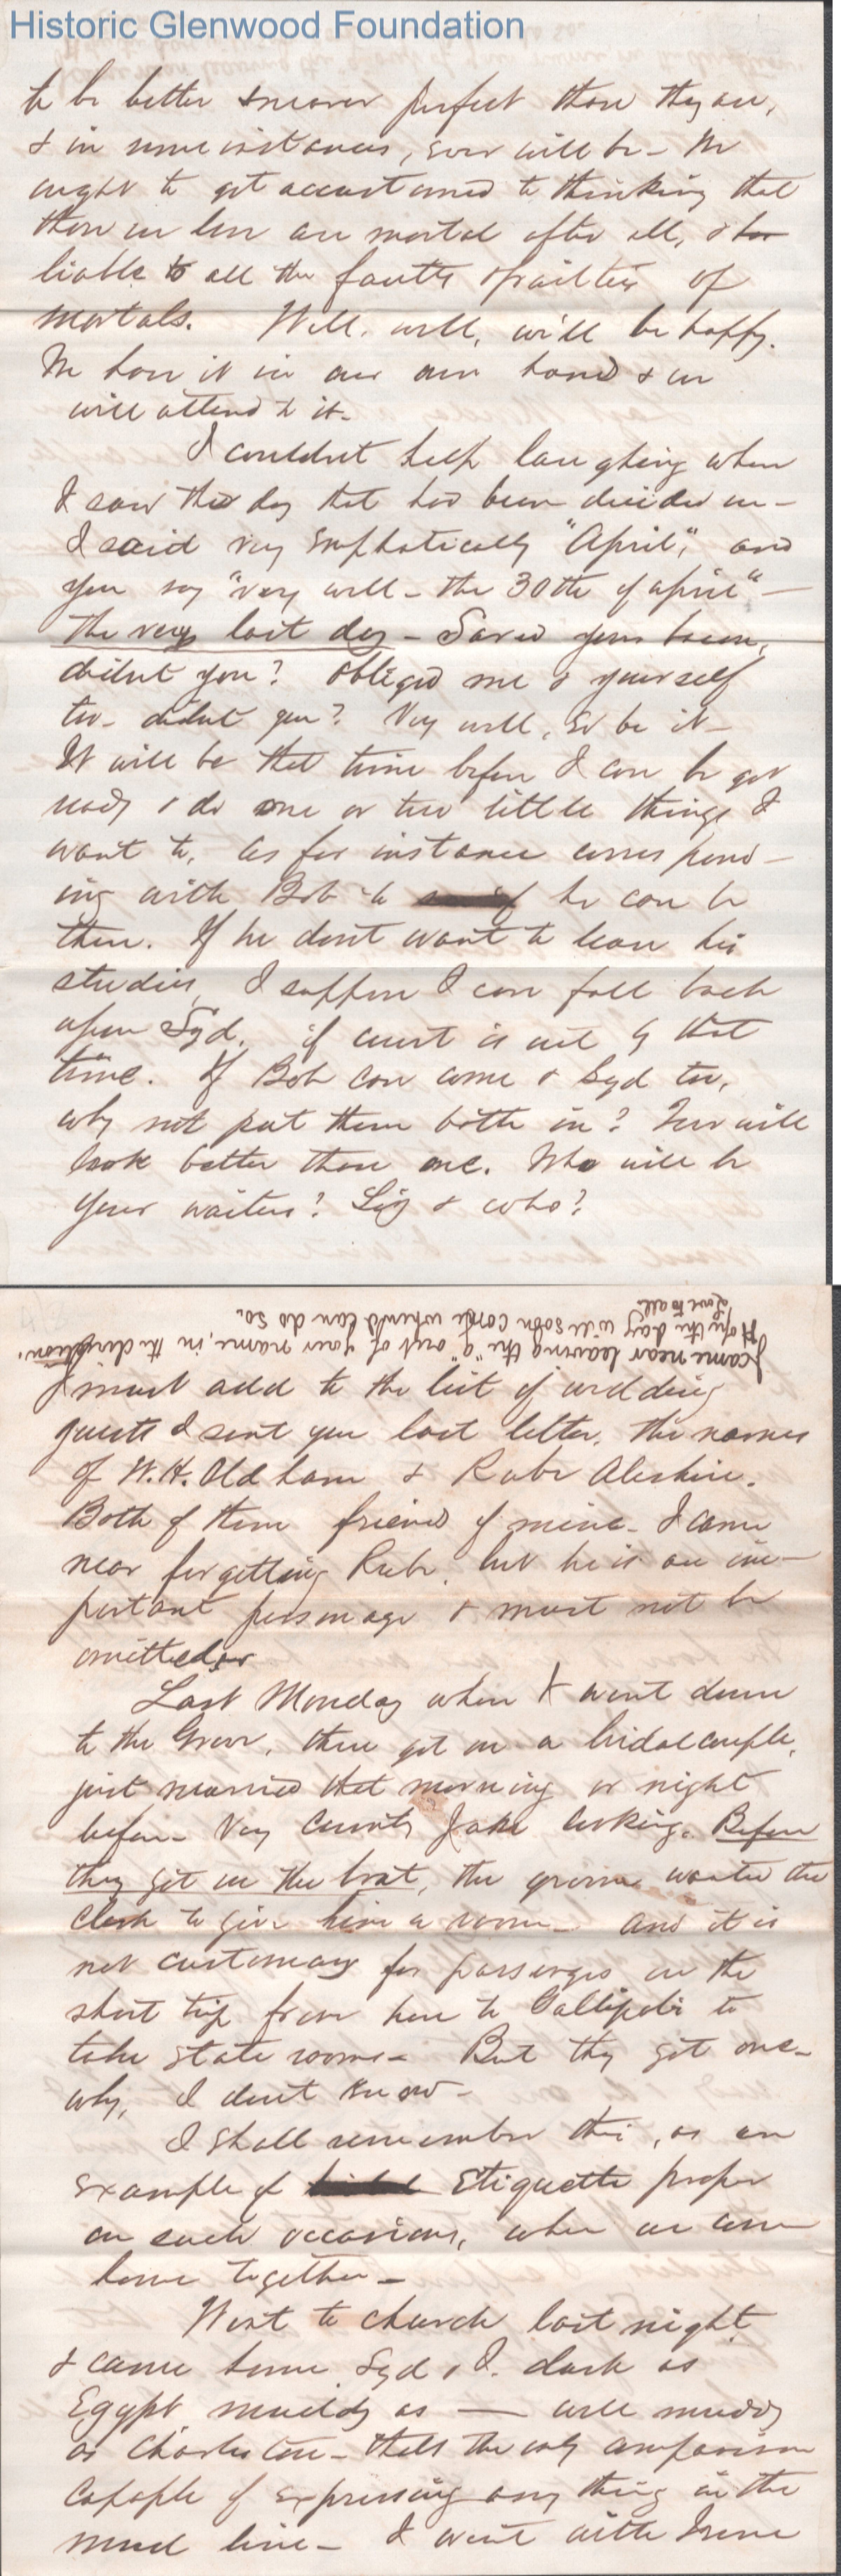 Historic Glenwood Foundation
to be better & nearer perfect than they are,
& in some instances, ever will be - We
ought to get accustomed to thinking that
those we love are mortal after all, &
liable to all the faults & frailties of
mortals. Well, well, we'll be happy.
We have it in our own hand & we
will attend to it.
I couldn't help laughing when
I saw the day that had been decided on -
I said very emphatically "April", and
you say "very well - the 30th of April" -
the very last day - Saved your bacon,
didn't you? Obliged me & yourself
too - didn't you? Very well, so be it -
It will be that time before I can be got
ready & do one or two little things I
want to, as for instance correspond -
ing with Bob to if he can be
there. If he don't want to leave his
studies, I suppose I can fall back
upon Syd. if court is out by that
time. If Bob can come & Syd too,
why not put them both in? Two will
look better than one. Who will be
your waiters? Liz & who?
I came near leaving the "a" out of your name, in the direction.
Hope the day will soon come when I can do so.
Love to all.
I must add to the list of wedding
guests I sent you last letter, the names
of W.H. Oldham & Rube Aleshire.
Both of them friends of mine - I came
near forgetting Rube, but he is an im -
portant personage & must not be
omitted
Last Monday when I went down
to the Grove, there got on a bridal couple,
just married that morning or night
before - Very County Jake looking. Before
they got on the boat, the groom wanted the
clerk to give him a room - and it is
not customary for passengers on the
short trip from here to Gallipolis to
take state rooms - But they got one -
why, I don't know -
I shall remember this, as an
example of Etiquette proper
on such occasions, when we come
home together -
Went to church last night
& came home Syd & I. dark as
Egypt muddy as — well muddy
as Charleston - thats the only comparison
capable of expressing any thing in the
mud line - I went with Irene